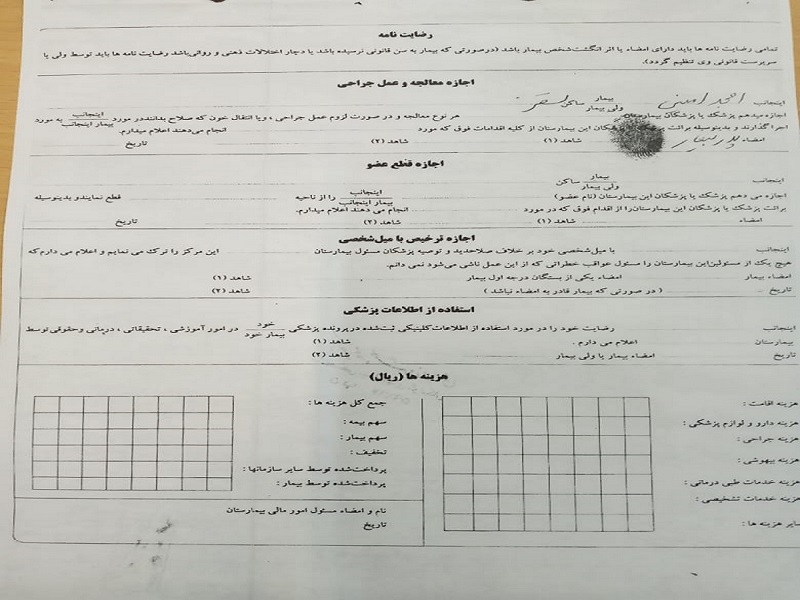 رضایت نامه
تمامی رضایت نامه ها باید دارای امضاء یا اثر انگشت شخص بیمار باشد (درصورتی که بیمار به سن قانونی نرسیده باشد یا دچار اختلالات ذهنی و روانی باشد رضایت نامه ها باید توسط ولی یا
سرپرست قانونی وی تنظیم گردد).
اجازه معالجه و عمل جراحی
اینجانب بیمار / ولی بیمار ساکن
اجازه میدهم پزشک یا پزشکان بیمارستان هر نوع معالجه و در صورت لزوم عمل جراحی ، ویا انتقال خون که صلاح بدانند در مورد اینجانب / بیمار اینجانب به مورد
اجرا گذارند و بدینوسیله برائت پزشک یا پزشکان این بیمارستان از کلیه اقدامات فوق که مورد انجام می‌دهند اعلام میدارم.
امضاء پدر بیمار شاهد (۱) شاهد (۲) تاریخ
اجازه قطع عضو
اینجانب بیمار / ولی بیمار ساکن
اجازه می دهم پزشک یا پزشکان این بیمارستان (نام عضو) اینجانب / بیمار اینجانب را از ناحیه قطع نمایند و بدینوسیله
برائت پزشک یا پزشکان این بیمارستان را از اقدام فوق که در مورد انجام می دهند اعلام میدارم.
امضاء شاهد (۱) شاهد (۲) تاریخ
اجازه ترخیص با میل شخصی
اینجانب با میل شخصی خود بر خلاف صلاحدید و توصیه پزشکان مسئول بیمارستان این مرکز را ترک می نمایم و اعلام می دارم که
هیچ یک از مسئولین این بیمارستان را مسئول عواقب خطراتی که از این عمل ناشی می‌شود نمی دانم.
امضاء بیمار امضاء یکی از بستگان درجه اول بیمار شاهد (۱)
تاریخ ( در صورتی که بیمار قادر به امضاء نباشد ) شاهد (۲)
استفاده از اطلاعات پزشکی
اینجانب رضایت خود را در مورد استفاده از اطلاعات کلینیکی ثبت شده در پرونده پزشکی خود / بیمار خود در امور آموزشی ، تحقیقاتی ، درمانی و حقوقی توسط
بیمارستان اعلام می دارم . شاهد (۱)
تاریخ امضاء بیمار یا ولی بیمار شاهد (۲)
هزینه ها (ریال)
هزینه اقامت :
هزینه دارو و لوازم پزشکی :
هزینه جراحی :
هزینه بیهوشی :
هزینه خدمات طبی درمانی :
هزینه خدمات تشخیصی :
سایر هزینه ها :
جمع کل هزینه ها :
سهم بیمه :
سهم بیمار :
تخفیف :
پرداخت‌شده توسط سایر سازمانها :
پرداخت‌شده توسط بیمار :
نام و امضاء مسئول امور مالی بیمارستان
تاریخ